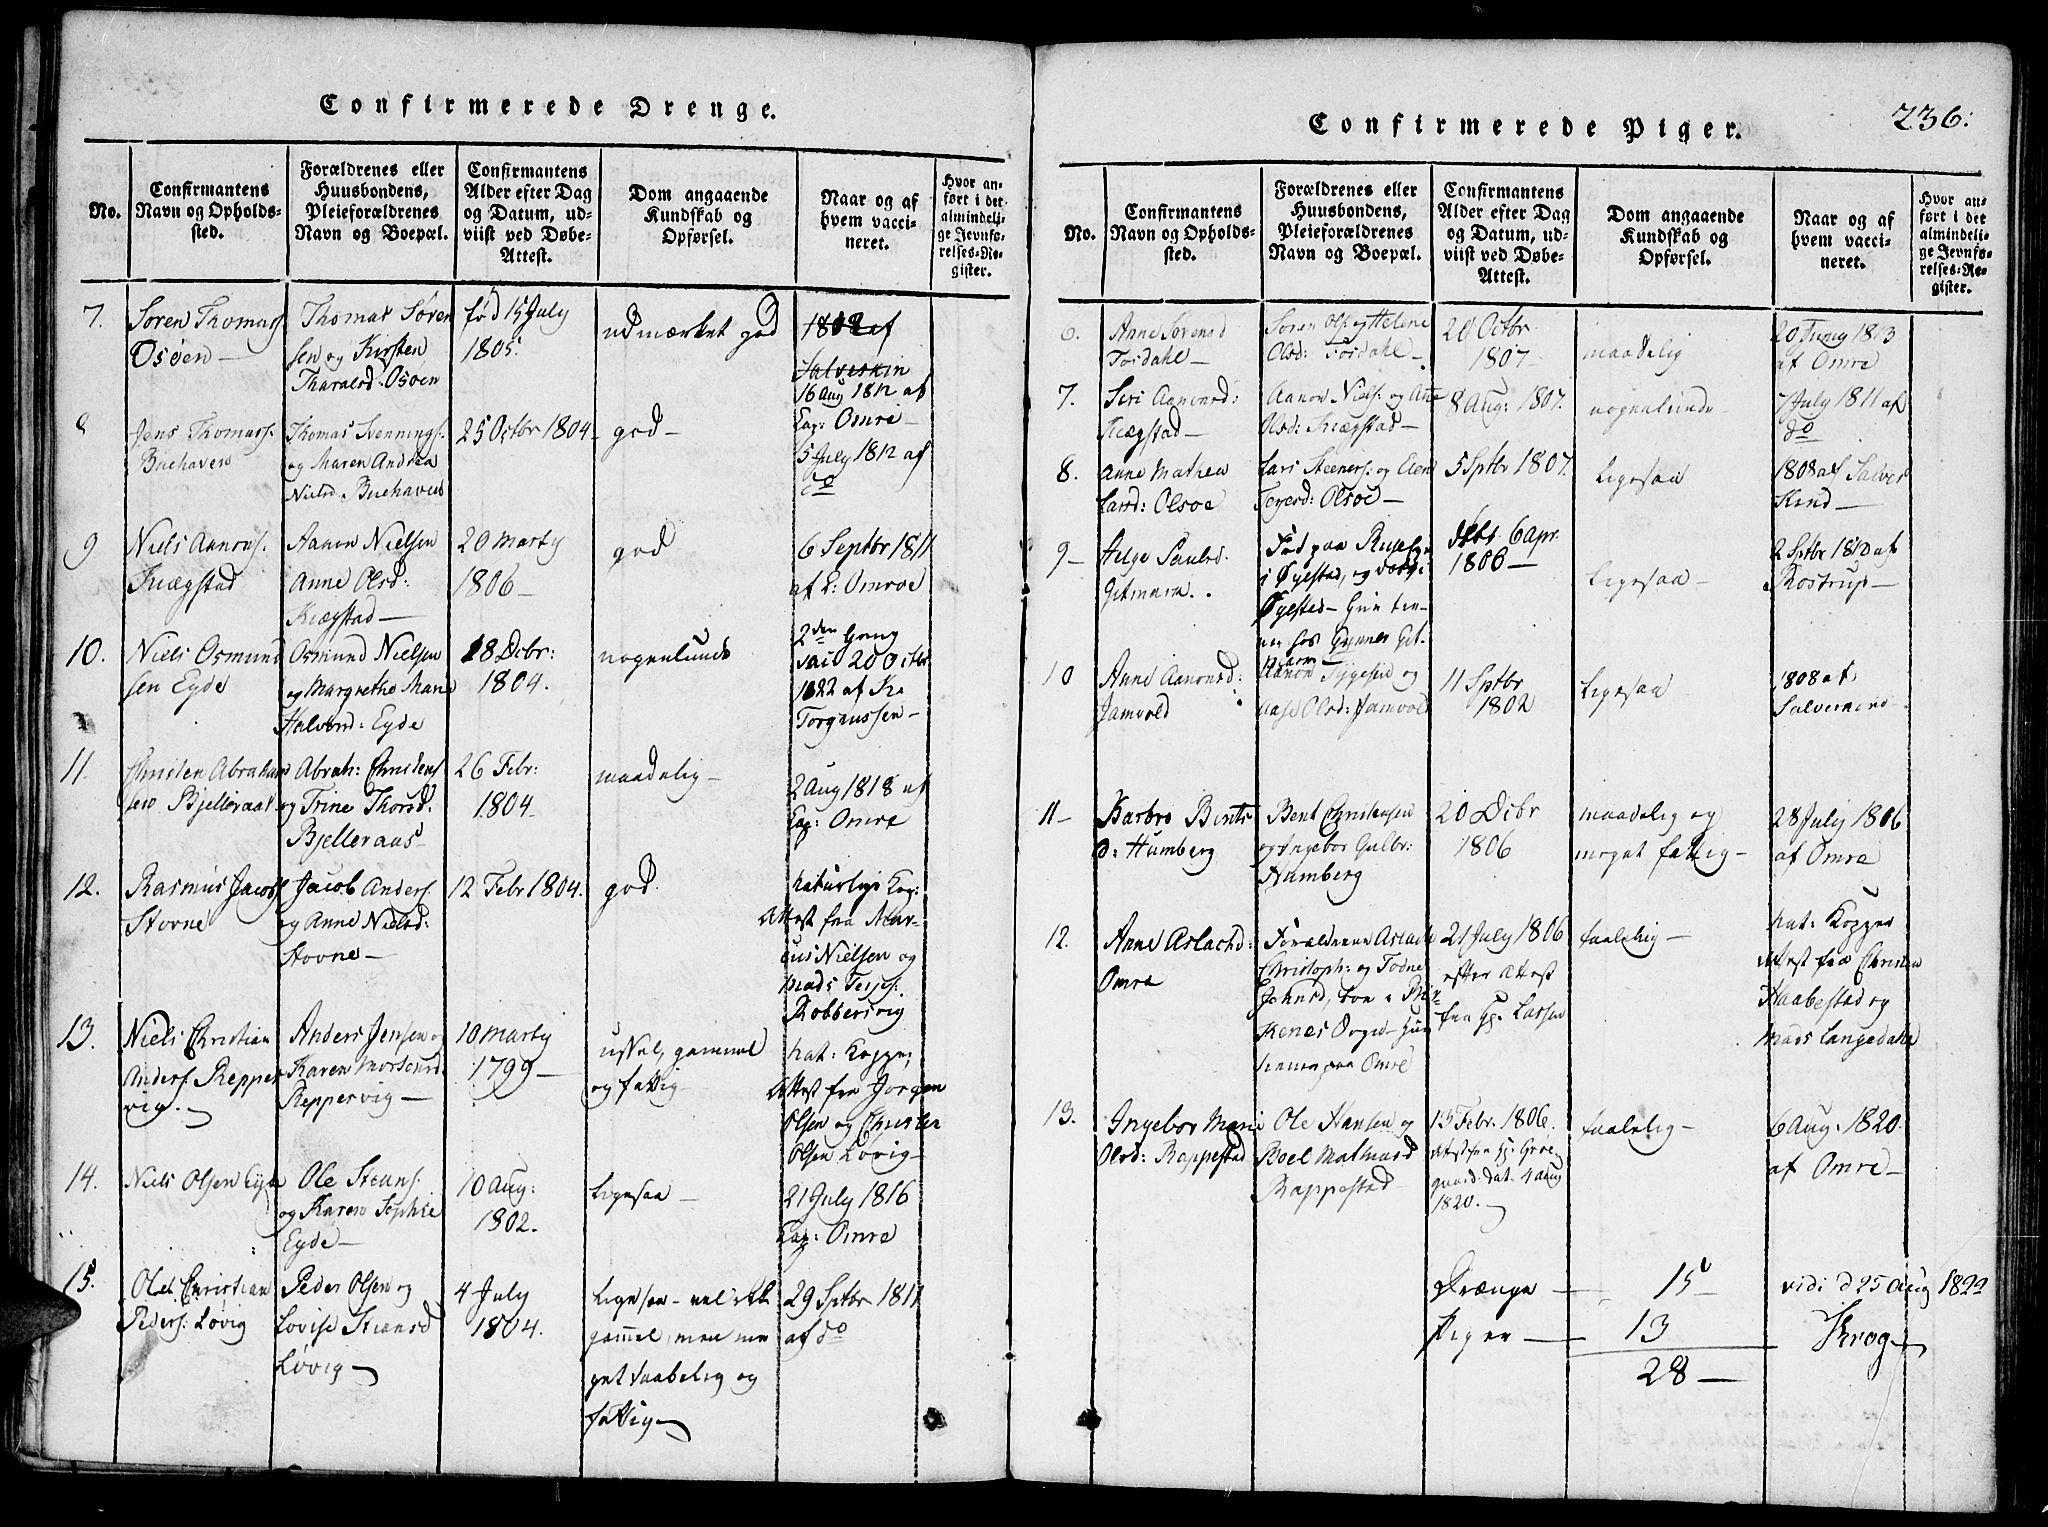 Confirmerede Drenge.
No.
Confirmantens
Navn og Opholds-
sted.
Forældrenes eller
Huusbondens,
Pleieforældrenes
Navn og Boepæl.
Confirmantens
Alder efter Dag
og Datum, ud-
viist ved Døbe-
Attest.
Dom angaaende
Kundskab og
Opførsel.
Naar og af
hvem vacci-
neret.
Hvor an-
ført i det
almindeli-
ge Jevnfø-
relses-Re-
gister.
7.
Søren Thomass
Osøen —
Thomas Søren
sen og Kirsten
Tharalsd. Osøen
fød 15 July
1805.
udmærket god
1802 af
Salveskin
16 Aug 1812 af
Cap: Omre —
8
Jens Thomass.
Buehaven
Thomas Svennings.
og Maren Andrea
Nielsd. Buehaven
25 Octbr 1804 —
god —
5 July 1812 af
do
9
Niels Aanons.
Aanon Nielsen
Anne Olsd:
20 Marty
1806 —
god
6 Septbr 1811
af C: Omroe
10.
Niels Osmund
sen Eyde
Osmund Nielsen
og Margrethe Marie
Halvord: Eyde
28 Dcbr:
1804.
nogenlunde
2den Gang
vac 20 Octbr
1822 af Kr
Torgiussen —
11.
Christen Abraham
sen Bjelleraas
Abrah: Christens
og Trine Thorsd.
Bjelleraas
26 Febr:
1804
maadelig —
2 Aug 1818 af
Cap: Omre
12.
Rasmus Jacobs
Stovne
Jacob Anders.
og Anne Nielsd:
Stovne —
12 Febr 1804.
god.
naturlige Kop:
Attest fra Mar-
cus Nielsen og
Mads Terjes.
Robbersvig
13.
Niels Christian
Anders. Repper
vig. —
Anders Jensen og
Karen
Reppervig —
10 Marty
1799 —
ussel, gammel
og fattig —
nat: Kopper
Attest fra Jørgen
Olsen og Christen
Olsen Løvig —
14.
Niels Olsen Eyde
Ole Steans.
og Karen Sophie
Eyde —
10 Aug:
1802.
Ligesaa —
21 July 1816
Cap: Omre
15.
Ole Christian
Peders: Løvig
Peder Olsen og
Lovise Steansd
Løvig —
4 July
1804.
Ligesaa — vel ikke
gammel, men me
get taabelig og
fattig —
29 Sptbr 1811
af do
Confirmerede Piger.
236:
No.
Confirmantens
Navn og Opholds-
sted.
Forældrenes eller
Huusbondens,
Pleieforældrenes
Navn og Boepæl.
Confirmantens
Alder efter Dag
og Datum, ud-
viist ved Døbe-
Attest.
Dom angaaende
Kundskab og
Opførsel.
Naar og af
hvem vacci-
neret.
Hvor an-
ført i det
almindeli-
ge Jevnfø-
relses-Re-
gister.
6.
Anne Sørensd
Tosdahl —
Søren Ols. og Helene
Olsd: Tosdahl —
20 Octbr
1807
maadelig
20 Juny 1813
af Omre
7.
Siri Aanonsd:
Aanon Niels: og Anne
8 Aug: 1807.
nogenlunde
7 July 1811 af
do
8.
Anne Mathea
Larsd: Olsoe
Lars Steeners: og Elen
Terjesd: Olsoe —
5 Sptbr 1807.
Ligesaa
1808 af Salves
Kind —
9 —
Helge Saulsd.
Gitmark.
Fød paa
i Øyestad, og
Øyestad — Hun tie-
ner hos Gunner Git-
mark —
døbt 6 Apr.
1806 —
Ligesaa —
2 Sptbr 1810 af
Rostrup —
10
Anne Aanonsd:
Jamvold
Aanon Tygesen og
Aase Olsd: Jamvold
11 Sptbr
1802
Ligesaa
1808 af
11 —
Barbro Bents
d: Humberg
Bent Christensen
og Ingebor Gulbr:
Humberg
20 Dcbr
1806
maadelig og
meget fattig —
28 July 1806
af Omre
12.
Anne Aslachd:
Omre
Forældrene Aslach
Christoph: og Todne
Johnsd, boe i Bir-
kenes Sogn — Hun
tiener paa Omre
21 July 1806
efter Attest
fra Hr. Lassen
taalelig —
nat: Kopper
Attest fra Christen
Haabestad og
Mads Langedahl
13.
Ingebor Marie
Olsd: Rappestad
Ole Hansen og
Boel Mathiasd
Rappestad
13 Febr. 1806.
Attest fra Hr. Grøe-
gaard. dat. 4 Aug
1820. —
taalelig —
6 Aug. 1820.
af Omre —
Drænge — 15
Piger — 13
28 —
vidi d 25 Aug 1822
Krog